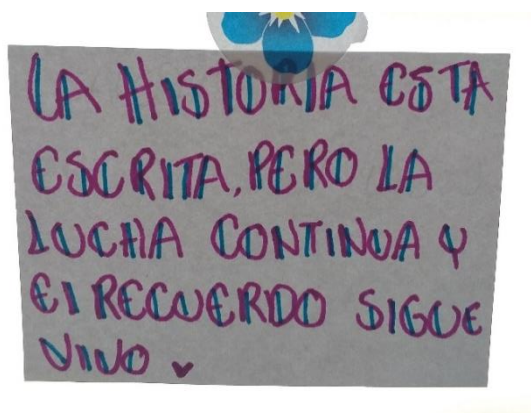 LA HISTORIA ESTA
ESCRITA, PERO LA
LUCHA CONTINUA Y
El RECUERDO SIGUE
VIVO